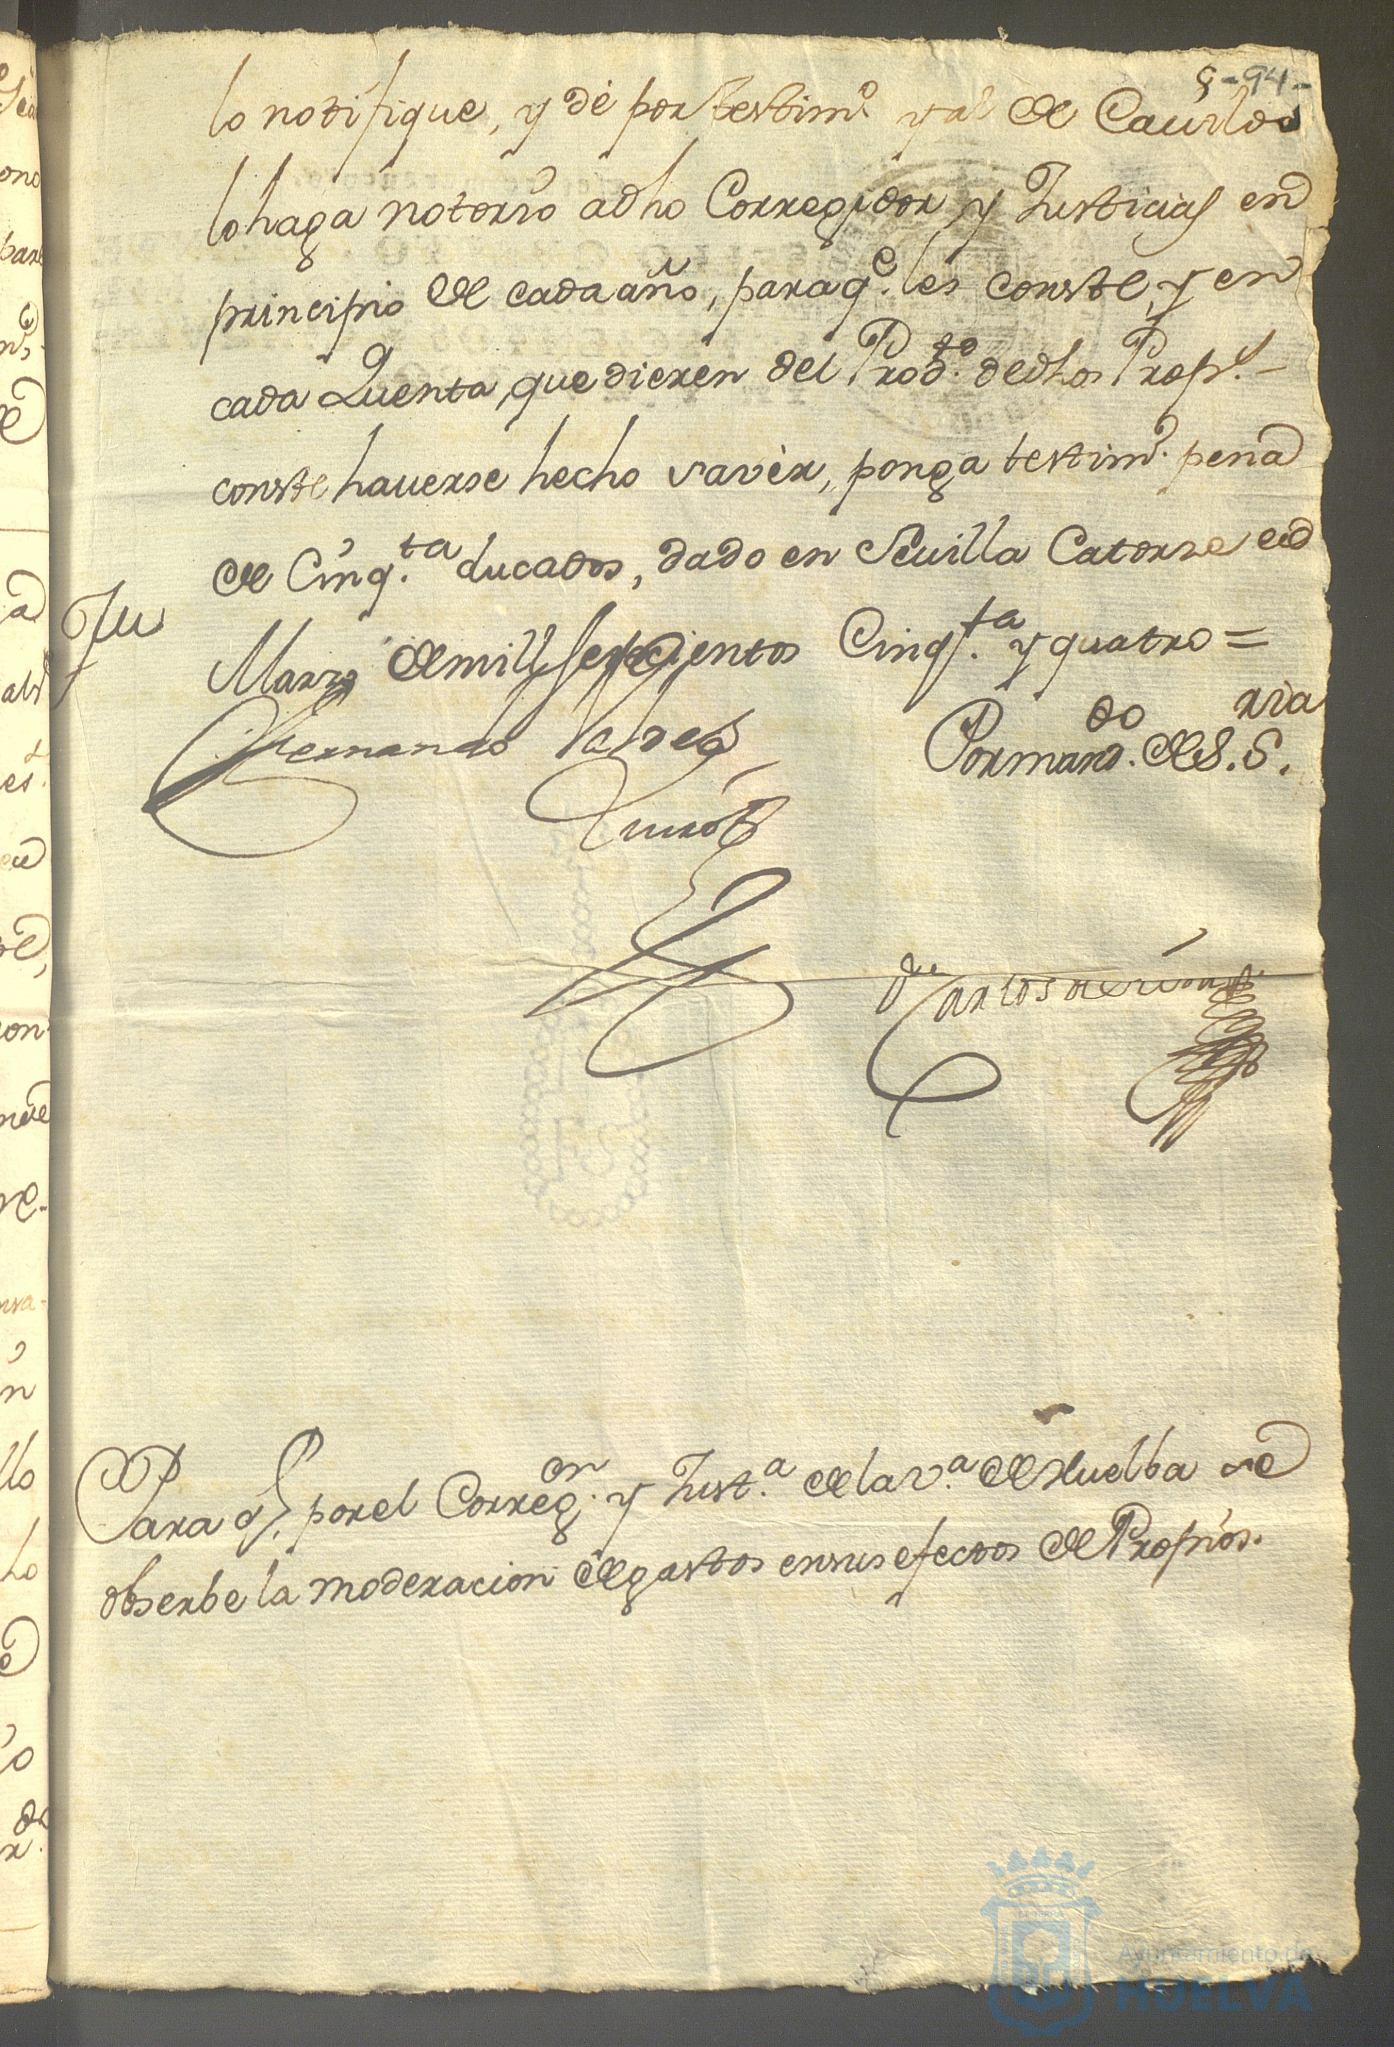 9-94-
lo notifique, y dè por testimº. y al de Cavildo
lo haga notorio adho Corregidor y Justicias en
principio de cada año, paraqe. les conste, y en
cada Quenta, que dieren del Prodto. dedhos Props.
conste haverse hecho savèr, ponga testimº. pena
de Cinqta. ducados, dado en Sevilla Catorze de
Marzo de mill Setecientos Cinqta. y quatro =
Fernando Valdes
Quirós
Pormando. de S. Sria.
Carlos de
Para q. porel Corregon. y Justa. de la va. de Huelba se
obserbe la moderacion de gastos en sus efectos de Propios.
Ayuntamiento de
HUELVA